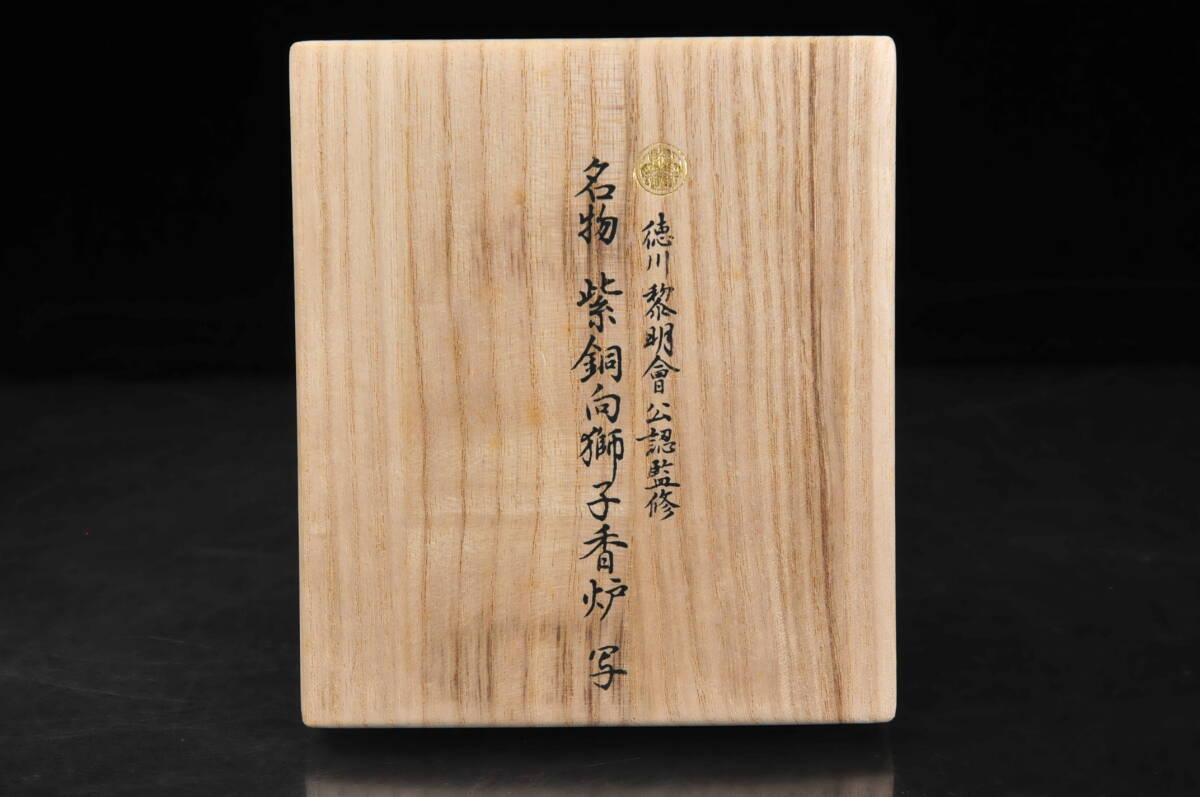 徳川黎明會公認監修
名物 紫銅向獅子香炉 写